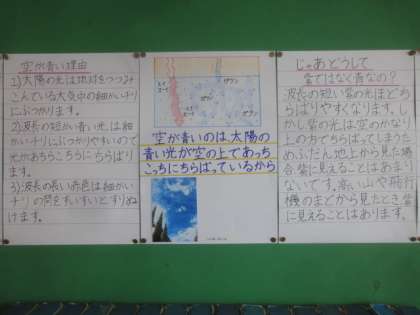 空が青い理由
1)太陽の光は地球をつつみ
こんでいる大気中の細かいチリ
にぶつかります。
2)波長の短かい青い光は細
かいチリにぶつかりやすいので
光があちらこちらにちらばり
ます。
3)波長の長い赤色は細かい
チリの間をすいすいとすりぬ
けます。
スイ
スーイ
スイ
スーイ
ザワン
空が青いのは太陽の
青い光が空の上であっち
こっちにちらばっているから
じゃあどうして
紫ではなく青なの?
波長の短い紫の光ほどち
らばりやすくなります。し
かし紫の光は空のかなり
上の方でちらばってしまうた
めふだん地上から見た場
合紫に見えることはあまり
ないです。高い山や飛行
機のまどから見たとき紫
に見えることはあります。